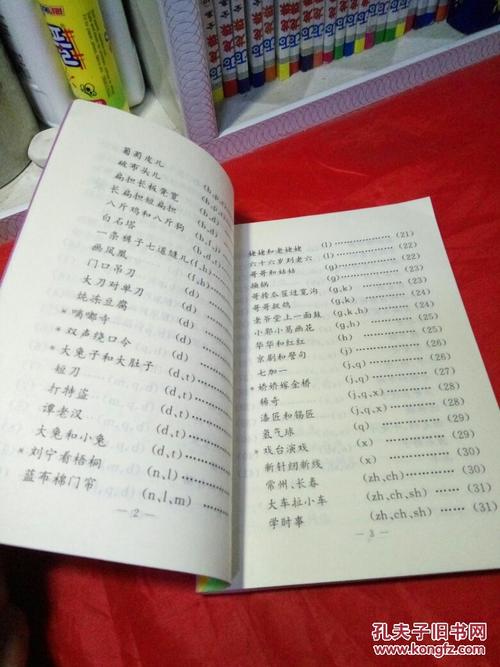 葡萄皮儿
破布头儿
扁担长板凳宽
长扁担短扁担
八斤鸡和八斤狗
白石塔
一条裤子七道缝儿(f,h)
画凤凰 (f,h)
门口吊刀 (d)
大刀对单刀 (d)
炖冻豆腐 (d)
*嘀嘟寺 (d)
*双声绕口令 (d)
*大兔子和大肚子 (d,t)
短刀 (d,t)
打特盗 (d,t)
谭老汉 (d,t)
大兔和小兔 (d,t)
*刘宁看梧桐 (n,l)
蓝布棉门帘 (n,l,m)
— 2 —
姥姥和老姥姥 (l) (21)
六十六岁刘老六 (l) (22)
哥哥和姑姑 (g) (22)
换锅 (g) (23)
哥挎瓜筐过宽沟 (g,k) (24)
哥哥捉鸽 (g,k) (24)
老爷堂上一面鼓 (g,k) (24)
小郭小葛画花 (g,h) (24)
华华和红红 (h) (25)
京剧和警句 (j) (26)
七加一 (j,q) (26)
*娇娇嫁金桥 (j,q) (27)
稀奇 (j,q,x) (28)
漆匠和锡匠 (j,q,x) (28)
氢气球 (q) (29)
*戏台演戏 (x) (29)
新针纫新线 (x) (30)
常州、长春 (zh,ch) (30)
大车拉小车 (zh,ch,sh) (31)
学时事 (zh,ch,sh) (31)
— 3 —
孔夫子旧书网
www.kongfz.com